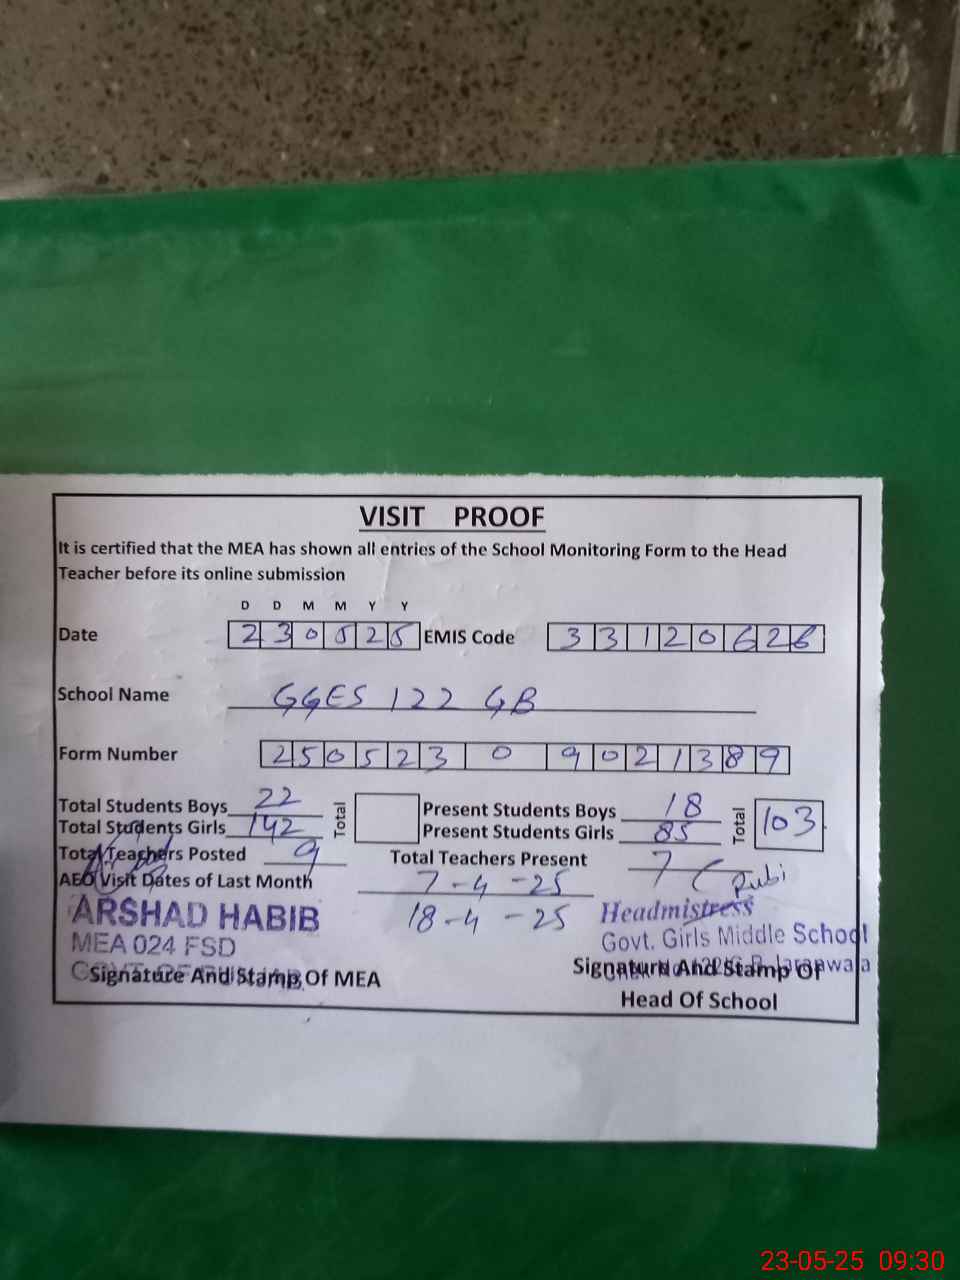 VISIT PROOF
It is certified that the MEA has shown all entries of the School Monitoring Form to the Head
Teacher before its online submission
D D M M Y Y
Date 2 3 0 5 2 5 EMIS Code 3 3 1 2 0 6 2 6
School Name GGES 122 GB
Form Number 2 5 0 5 2 3 0 9 0 2 1 3 8 9
Total Students Boys 22 Total Present Students Boys 18 Total 103
Total Students Girls 142 Present Students Girls 85
Total Teachers Posted 9 Total Teachers Present 7
AEO Visit Dates of Last Month 7-4-25 Rubi
18-4-25
ARSHAD HABIB Headmistress
MEA 024 FSD Govt. Girls Middle School
Signature And Stamp Of MEA Signature And Stamp Of
Jaranwala
Head Of School
23-05-25 09:30